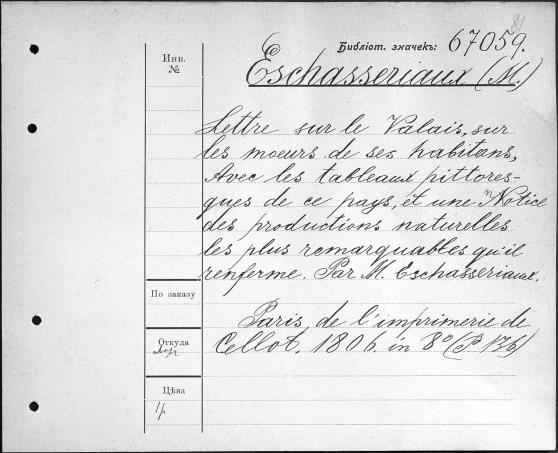 Библіот. значекъ: 67059.
Инв.
№
Eschasseriaux (M.)
Lettre sur le Valais, sur
les moeurs de ses habitans,
Avec les tableaux pittores-
ques de ce pays, et une Notice
des productions naturelles
les plus remarquables qu'il
renferme. Par M. Eschasseriaux.
По заказу
Paris, de l'imprimerie de
Откуда
Cellot. 1806. in 8° (P. 136)
Цѣна
1р